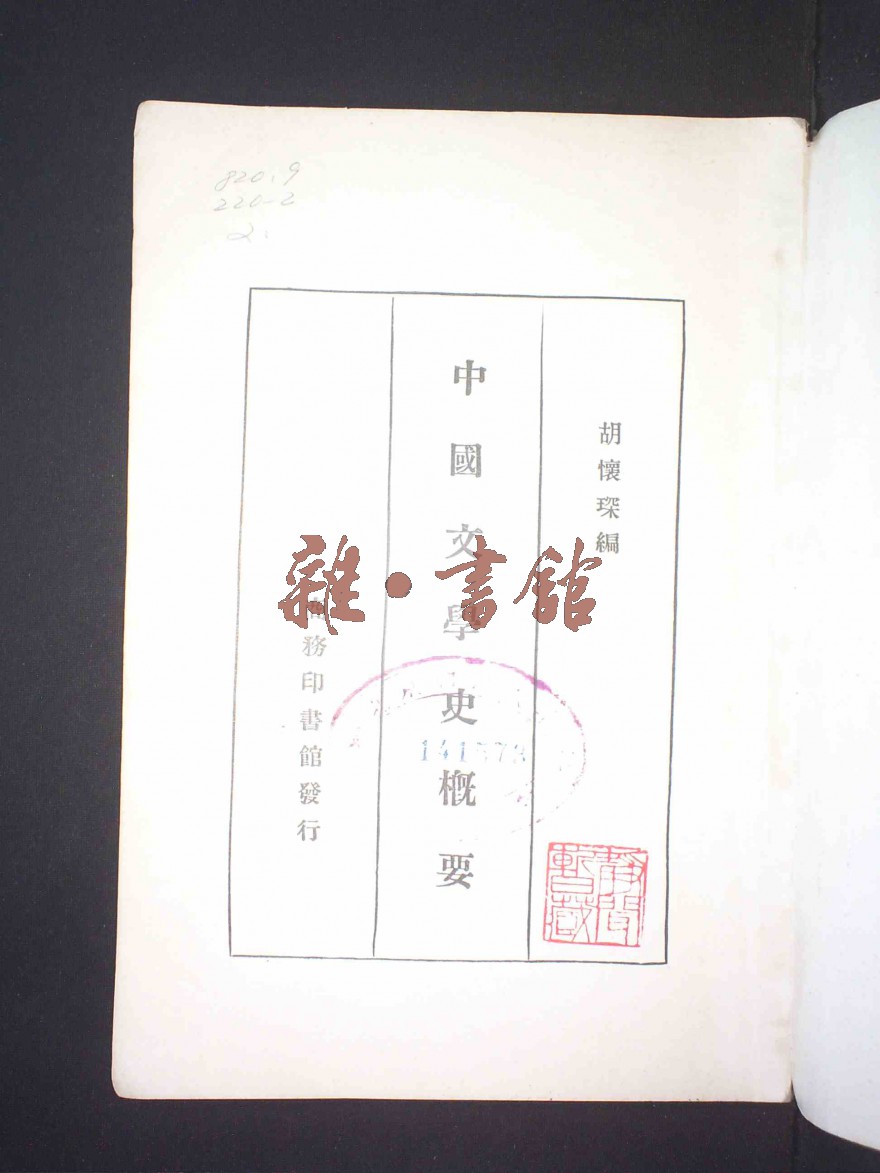 820.9
220-2
2.
胡懷琛編
中國文學史概要
商務印書館發行
雜·書館
靜聞暫藏